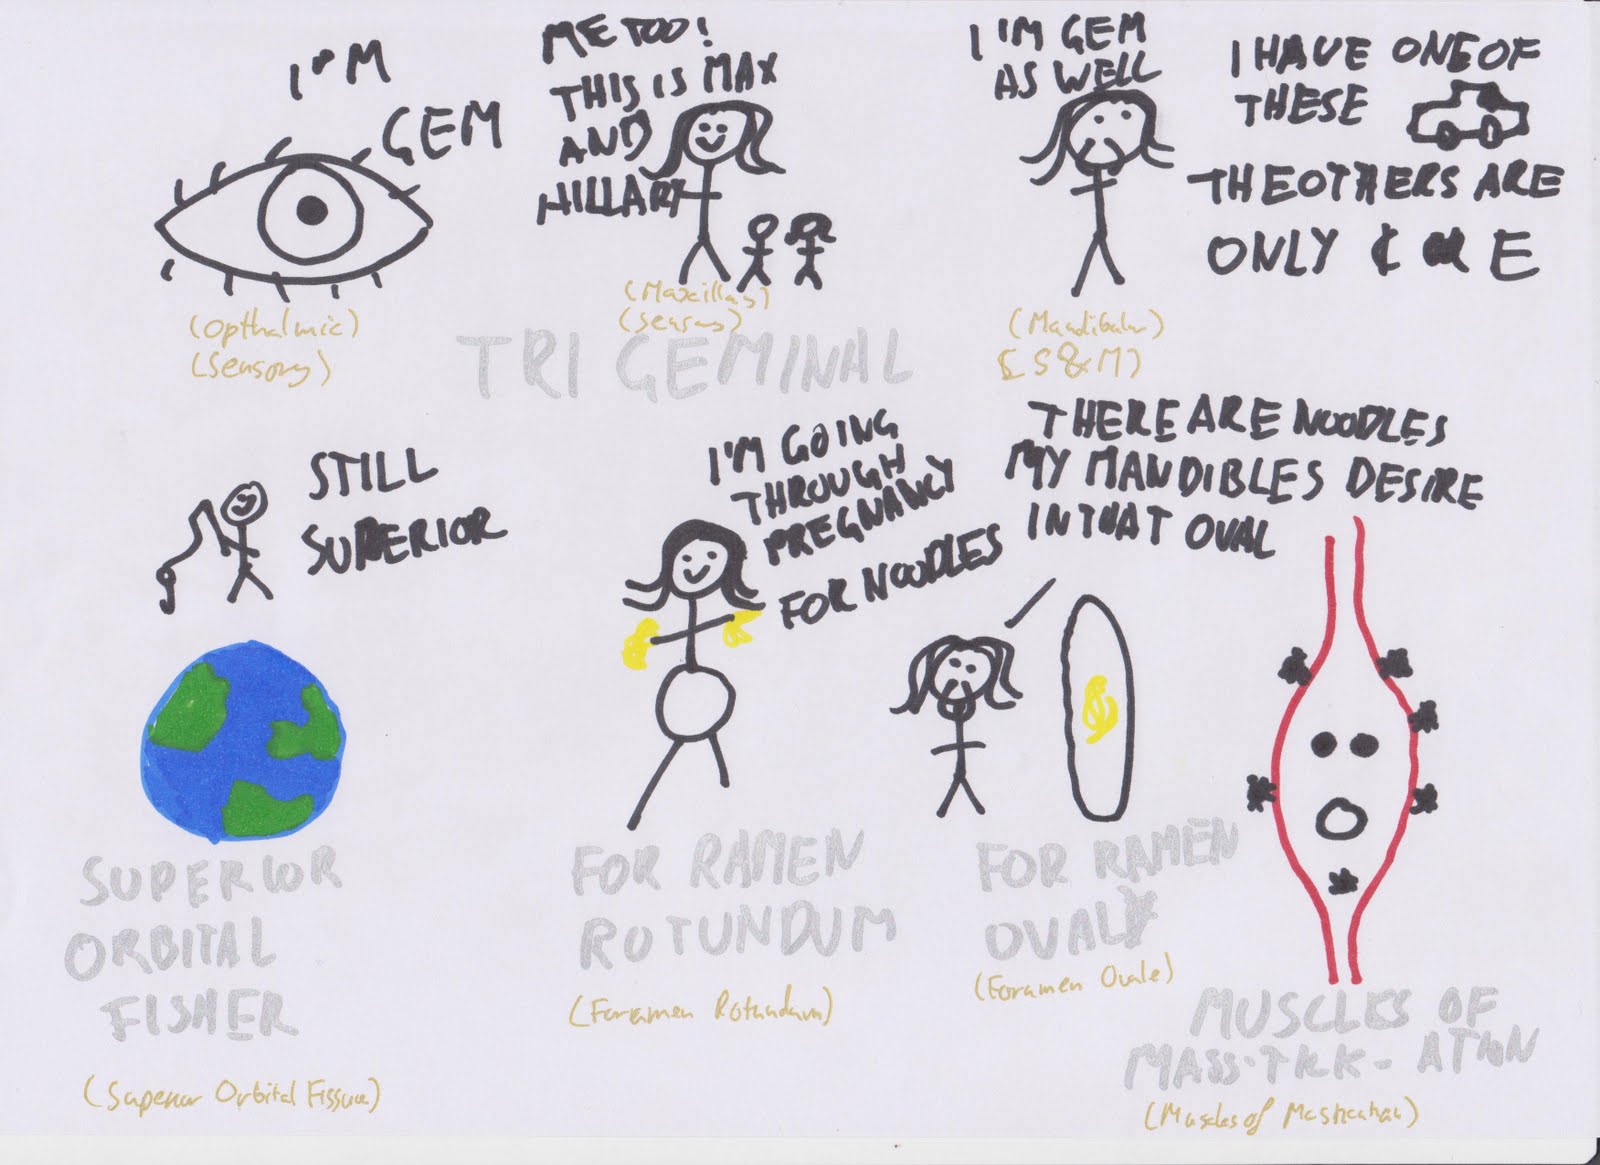 I'M
GEM
ME TOO!
THIS IS MAX
AND
HILLARY
I'M GEM
AS WELL
I HAVE ONE OF
THESE
THE OTHERS ARE
ONLY & E
(Opthalmic)
(Sensory)
(Maxillary)
(Sensory)
(Mandibular)
(S&M)
TRI GEMINAL
STILL
SUPERIOR
I'M GOING
THROUGH
PREGNANCY
FOR NOODLES
THERE ARE NOODLES
MY MANDIBLES DESIRE
IN THAT OVAL
SUPERIOR
ORBITAL
FISHER
(Superior Orbital Fissure)
FOR RAMEN
ROTUNDUM
(Foramen Rotundum)
FOR RAMEN
OVALY
(Foramen Ovale)
MUSCLES OF
MASS-TIKK-ATION
(Muscles of Mastication)